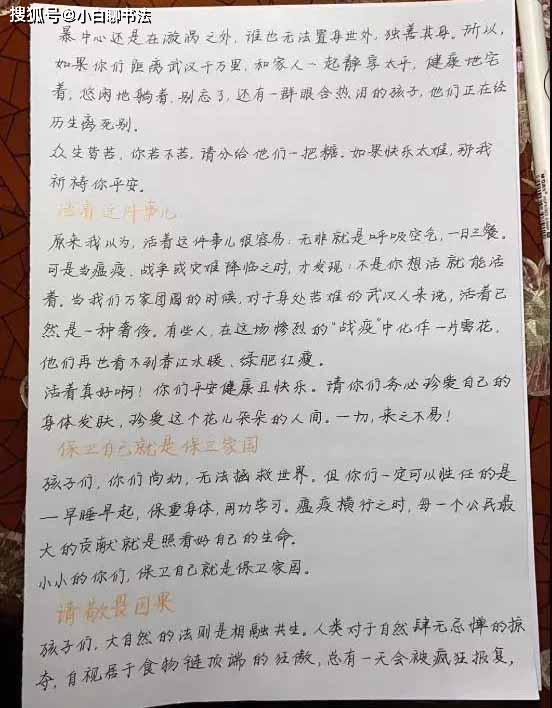 搜狐号@小白聊书法
暴中心还是在漩涡之外，谁也无法置身世外，独善其身。所以，
如果你们距离武汉千万里，和家人一起静享太平，健康地宅
着，悠闲地躺着，别忘了，还有一群眼含热泪的孩子，他们正在经
历生离死别。
众生皆苦，你若不苦，请分给他们一把糖。如果快乐太难，那我
祈祷你平安。
活着这件事儿
原来我以为，活着这件事儿很容易：无非就是呼吸空气，一日三餐。
可是当瘟疫、战争或灾难降临之时，才发现：不是你想活就能活
着。当我们万家团圆的时候，对于身处苦难的武汉人来说，活着已
然是一种奢侈。有些人，在这场惨烈的“战疫”中化作一片雪花，
他们再也看不到春江水暖、绿肥红瘦。
活着真好啊！你们平安健康且快乐。请你们务必珍爱自己的
身体发肤，珍爱这个花儿朵朵的人间。一切，来之不易！
保卫自己就是保卫家园
孩子们，你们尚幼，无法拯救世界。但你们一定可以胜任的是
—早睡早起，保重身体，用功学习。瘟疫横行之时，每一个公民最
大的贡献就是照看好自己的生命。
小小的你们，保卫自己就是保卫家园。
请敬畏因果
孩子们，大自然的法则是相融共生。人类对于自然肆无忌惮的掠
夺，自视居于食物链顶端的狂傲，总有一天会被疯狂报复，